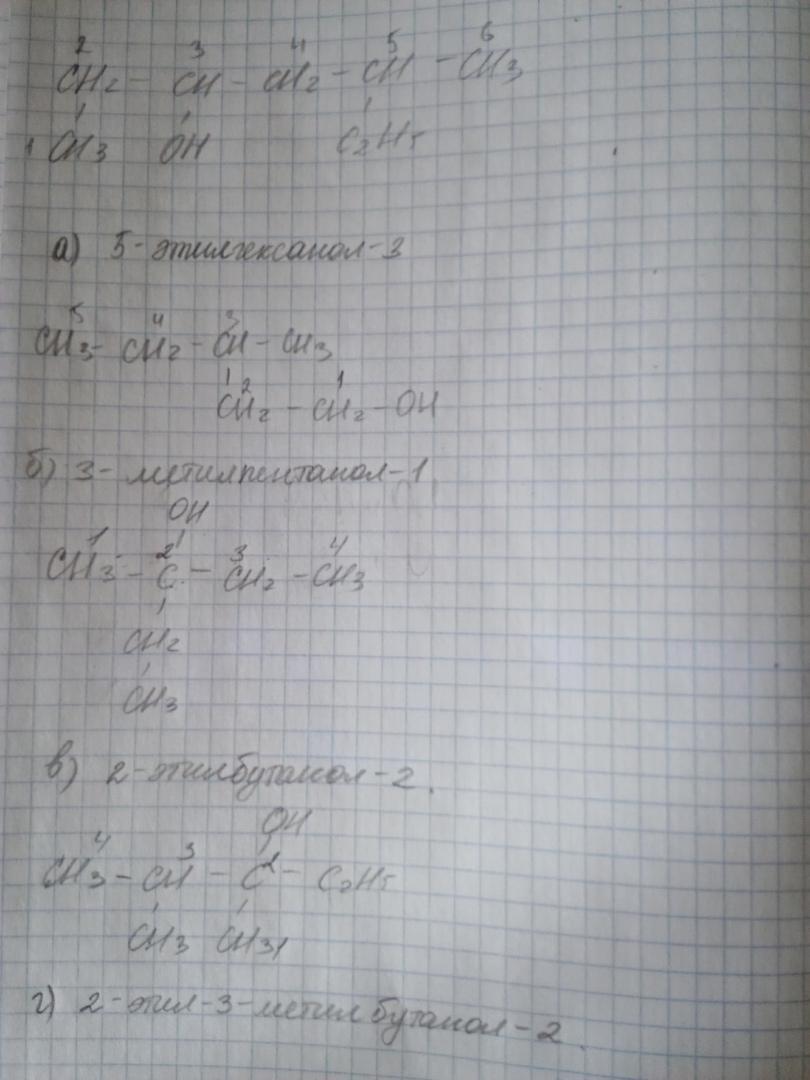 2 3 4 5 6
CH2 - CH - CH2 - CH - CH3
1 CH3 OH C2H5
а) 5-этилгексанол-3
5 4 3
CH3 - CH2 - CH - CH3
2 1
CH2 - CH2 - OH
б) 3-метилпентанол-1
OH
1 2 3 4
CH3 - C - CH2 - CH3
CH2
CH3
в) 2-этилбутанол-2.
OH
4 3 2
CH3 - CH - C - C2H5
CH3 CH3 1
г) 2-этил-3-метилбутанол-2.